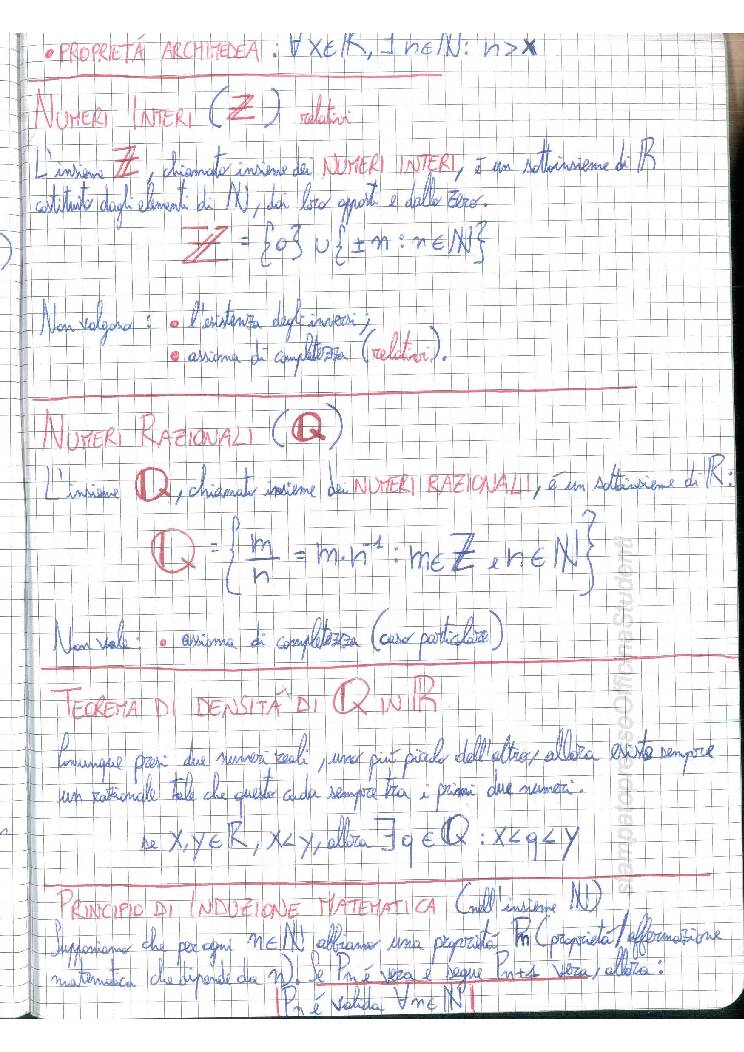 • PROPRIETÁ ARCHIMEDEA : ∀ x∈ℝ, ∃ n∈ℕ: n>x
NUMERI INTERI (ℤ) relativi
L'insieme ℤ, chiamato insieme dei NUMERI INTERI, é un sottoinsieme di ℝ
costituito dagli elementi di ℕ, dai loro opposti e dallo zero.
ℤ = {0} ∪ {±n : n∈ℕ}
Non valgono : • l'esistenza degli inversi,
• assioma di completezza (relativi).
NUMERI RAZIONALI (ℚ)
L'insieme ℚ, chiamato insieme dei NUMERI RAZIONALI, é un sottoinsieme di ℝ:
ℚ = { m/n = m·n⁻¹ : m∈ℤ e n∈ℕ }
Non vale : • assioma di completezza (caso particolare)
TEOREMA DI DENSITÁ DI ℚ IN ℝ
Comunque presi due numeri reali, uno piú piccolo dell'altro, allora esiste sempre
un razionale tale che questo cada sempre tra i primi due numeri.
se x,y∈ℝ, x<y, allora ∃q∈ℚ : x<q<y
PRINCIPIO DI INDUZIONE MATEMATICA (nell'insieme ℕ)
Supponiamo che per ogni n∈ℕ abbiamo una proprietá Pn (proprietá/affermazione
matematica che dipende da n). Se Pn é vera e segue Pn+1 vera, allora :
Pn é valida ∀n∈ℕ
stampatopressoOfficinaStudenti